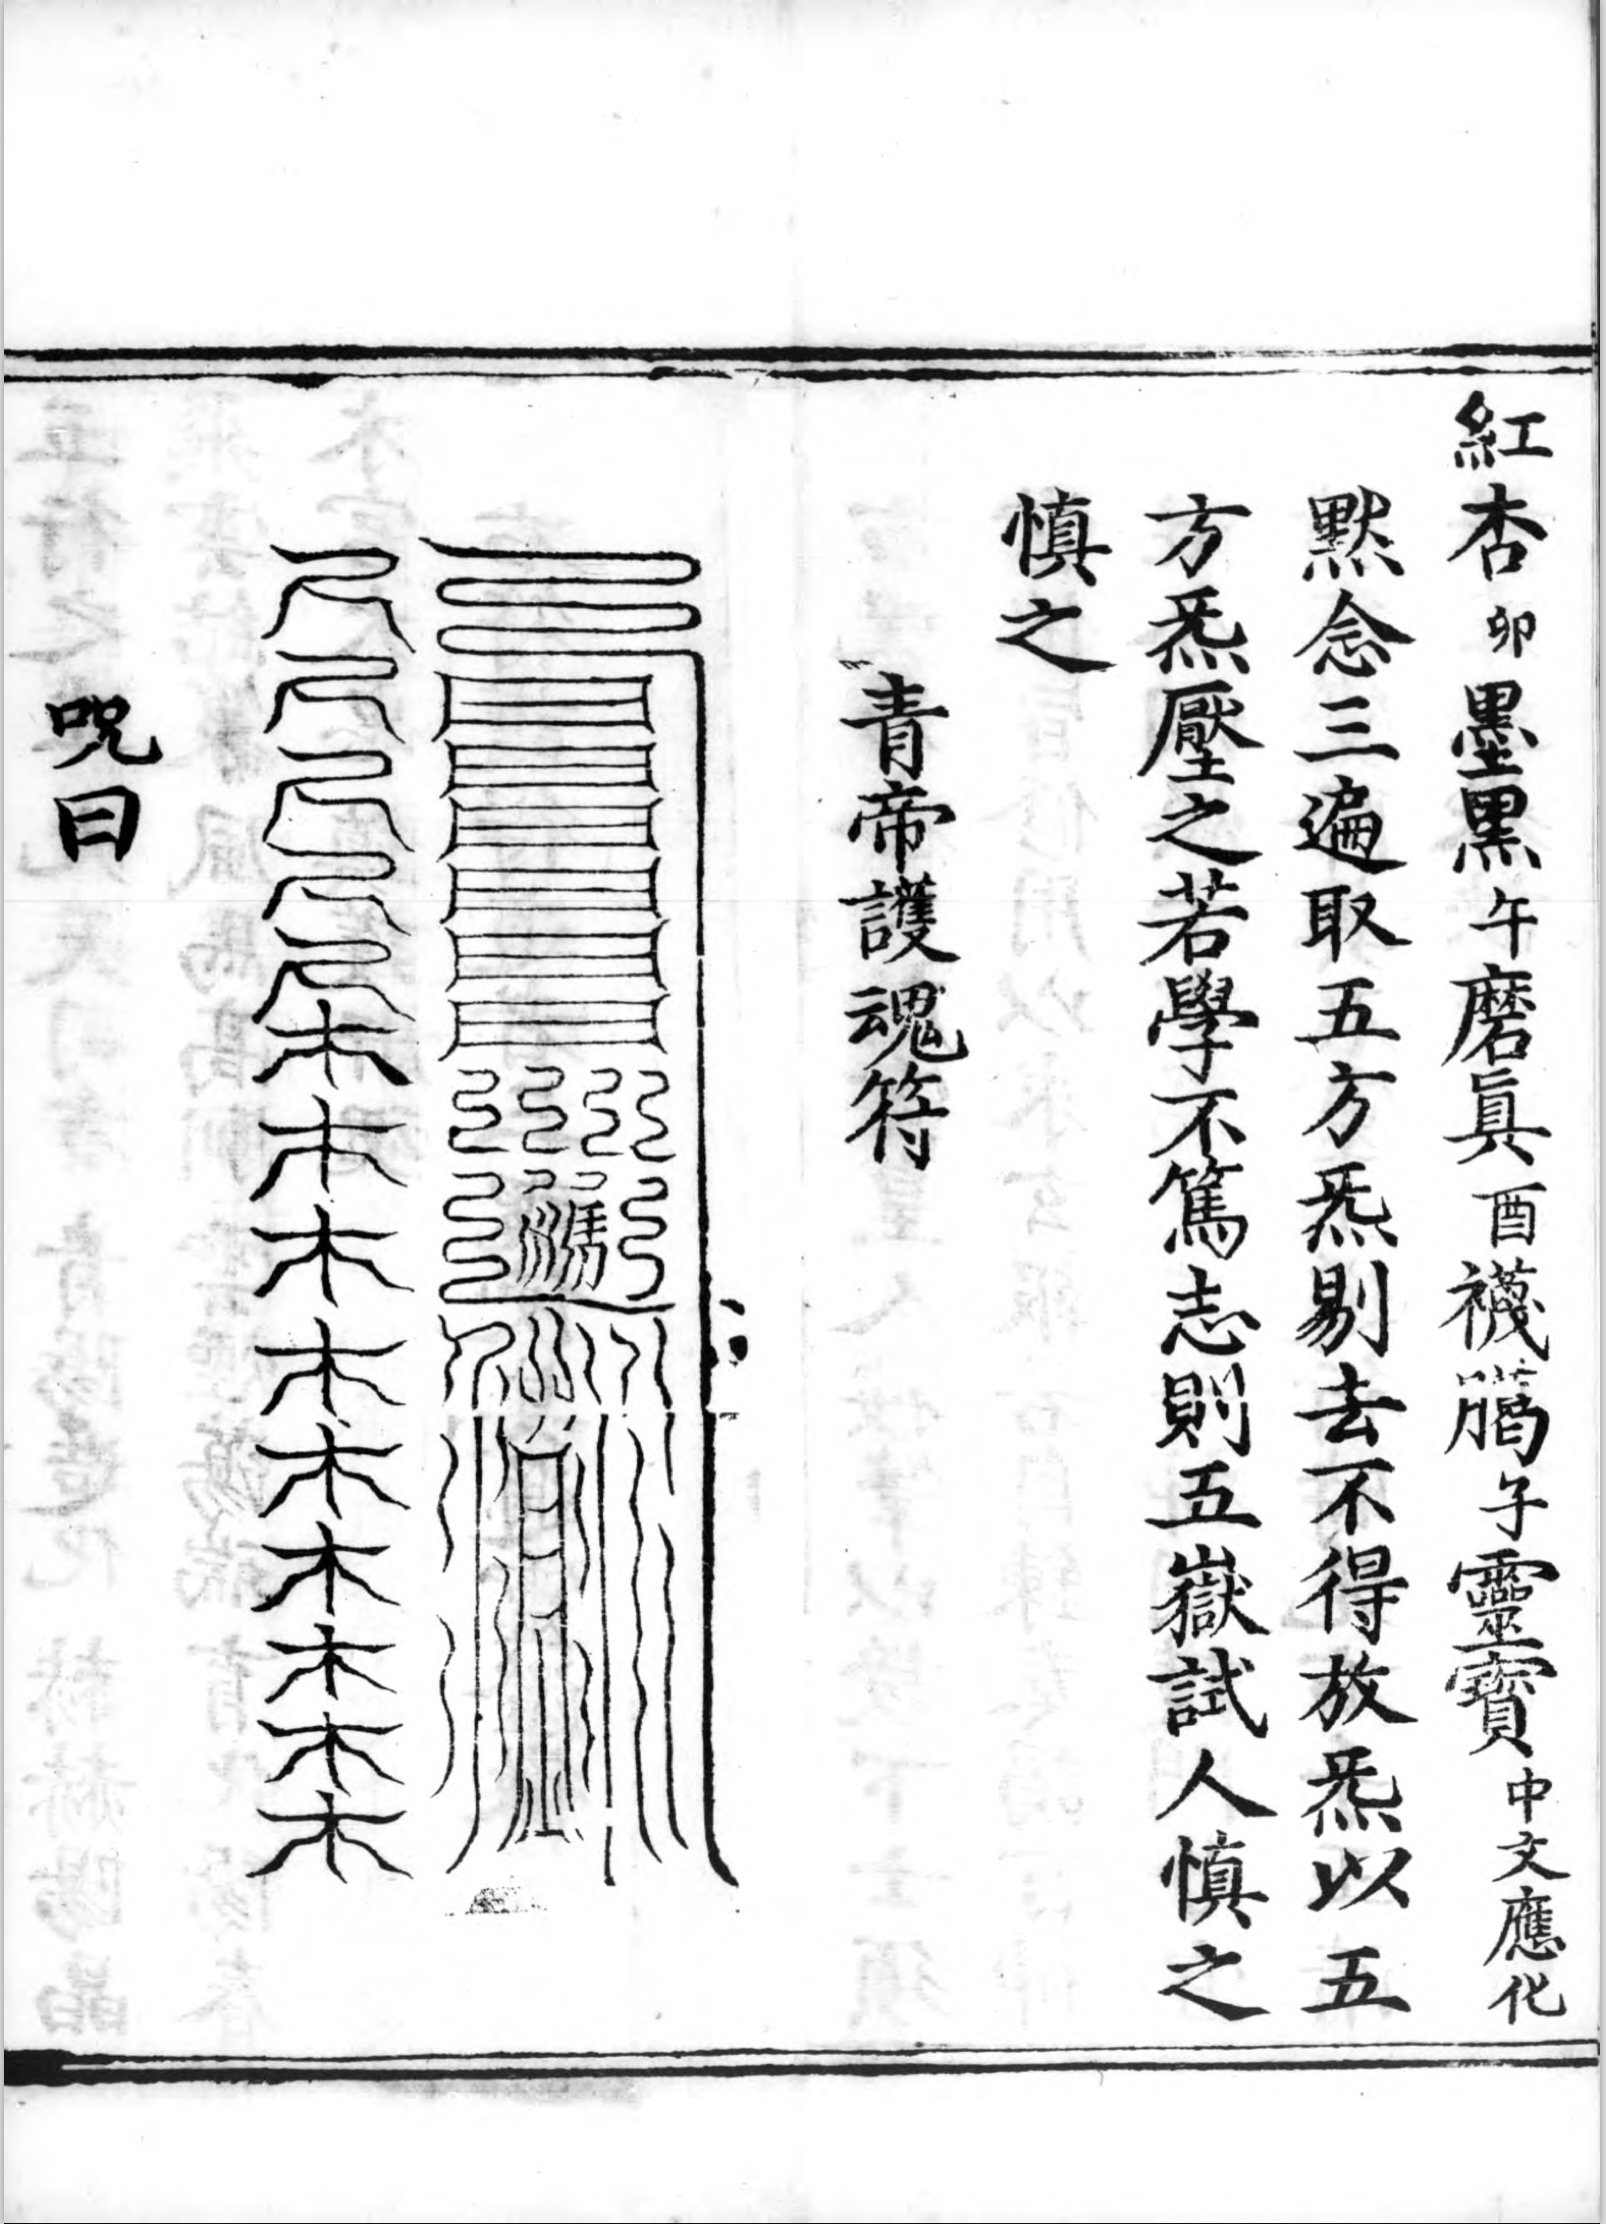 紅杏卯墨黒午磨眞酉襪臈子靈寳中文應化
黙念三遍取五方炁剔去不得放炁以五
方炁壓之若學不篤志則五嶽試人慎之
慎之
青帝護魂符
咒曰